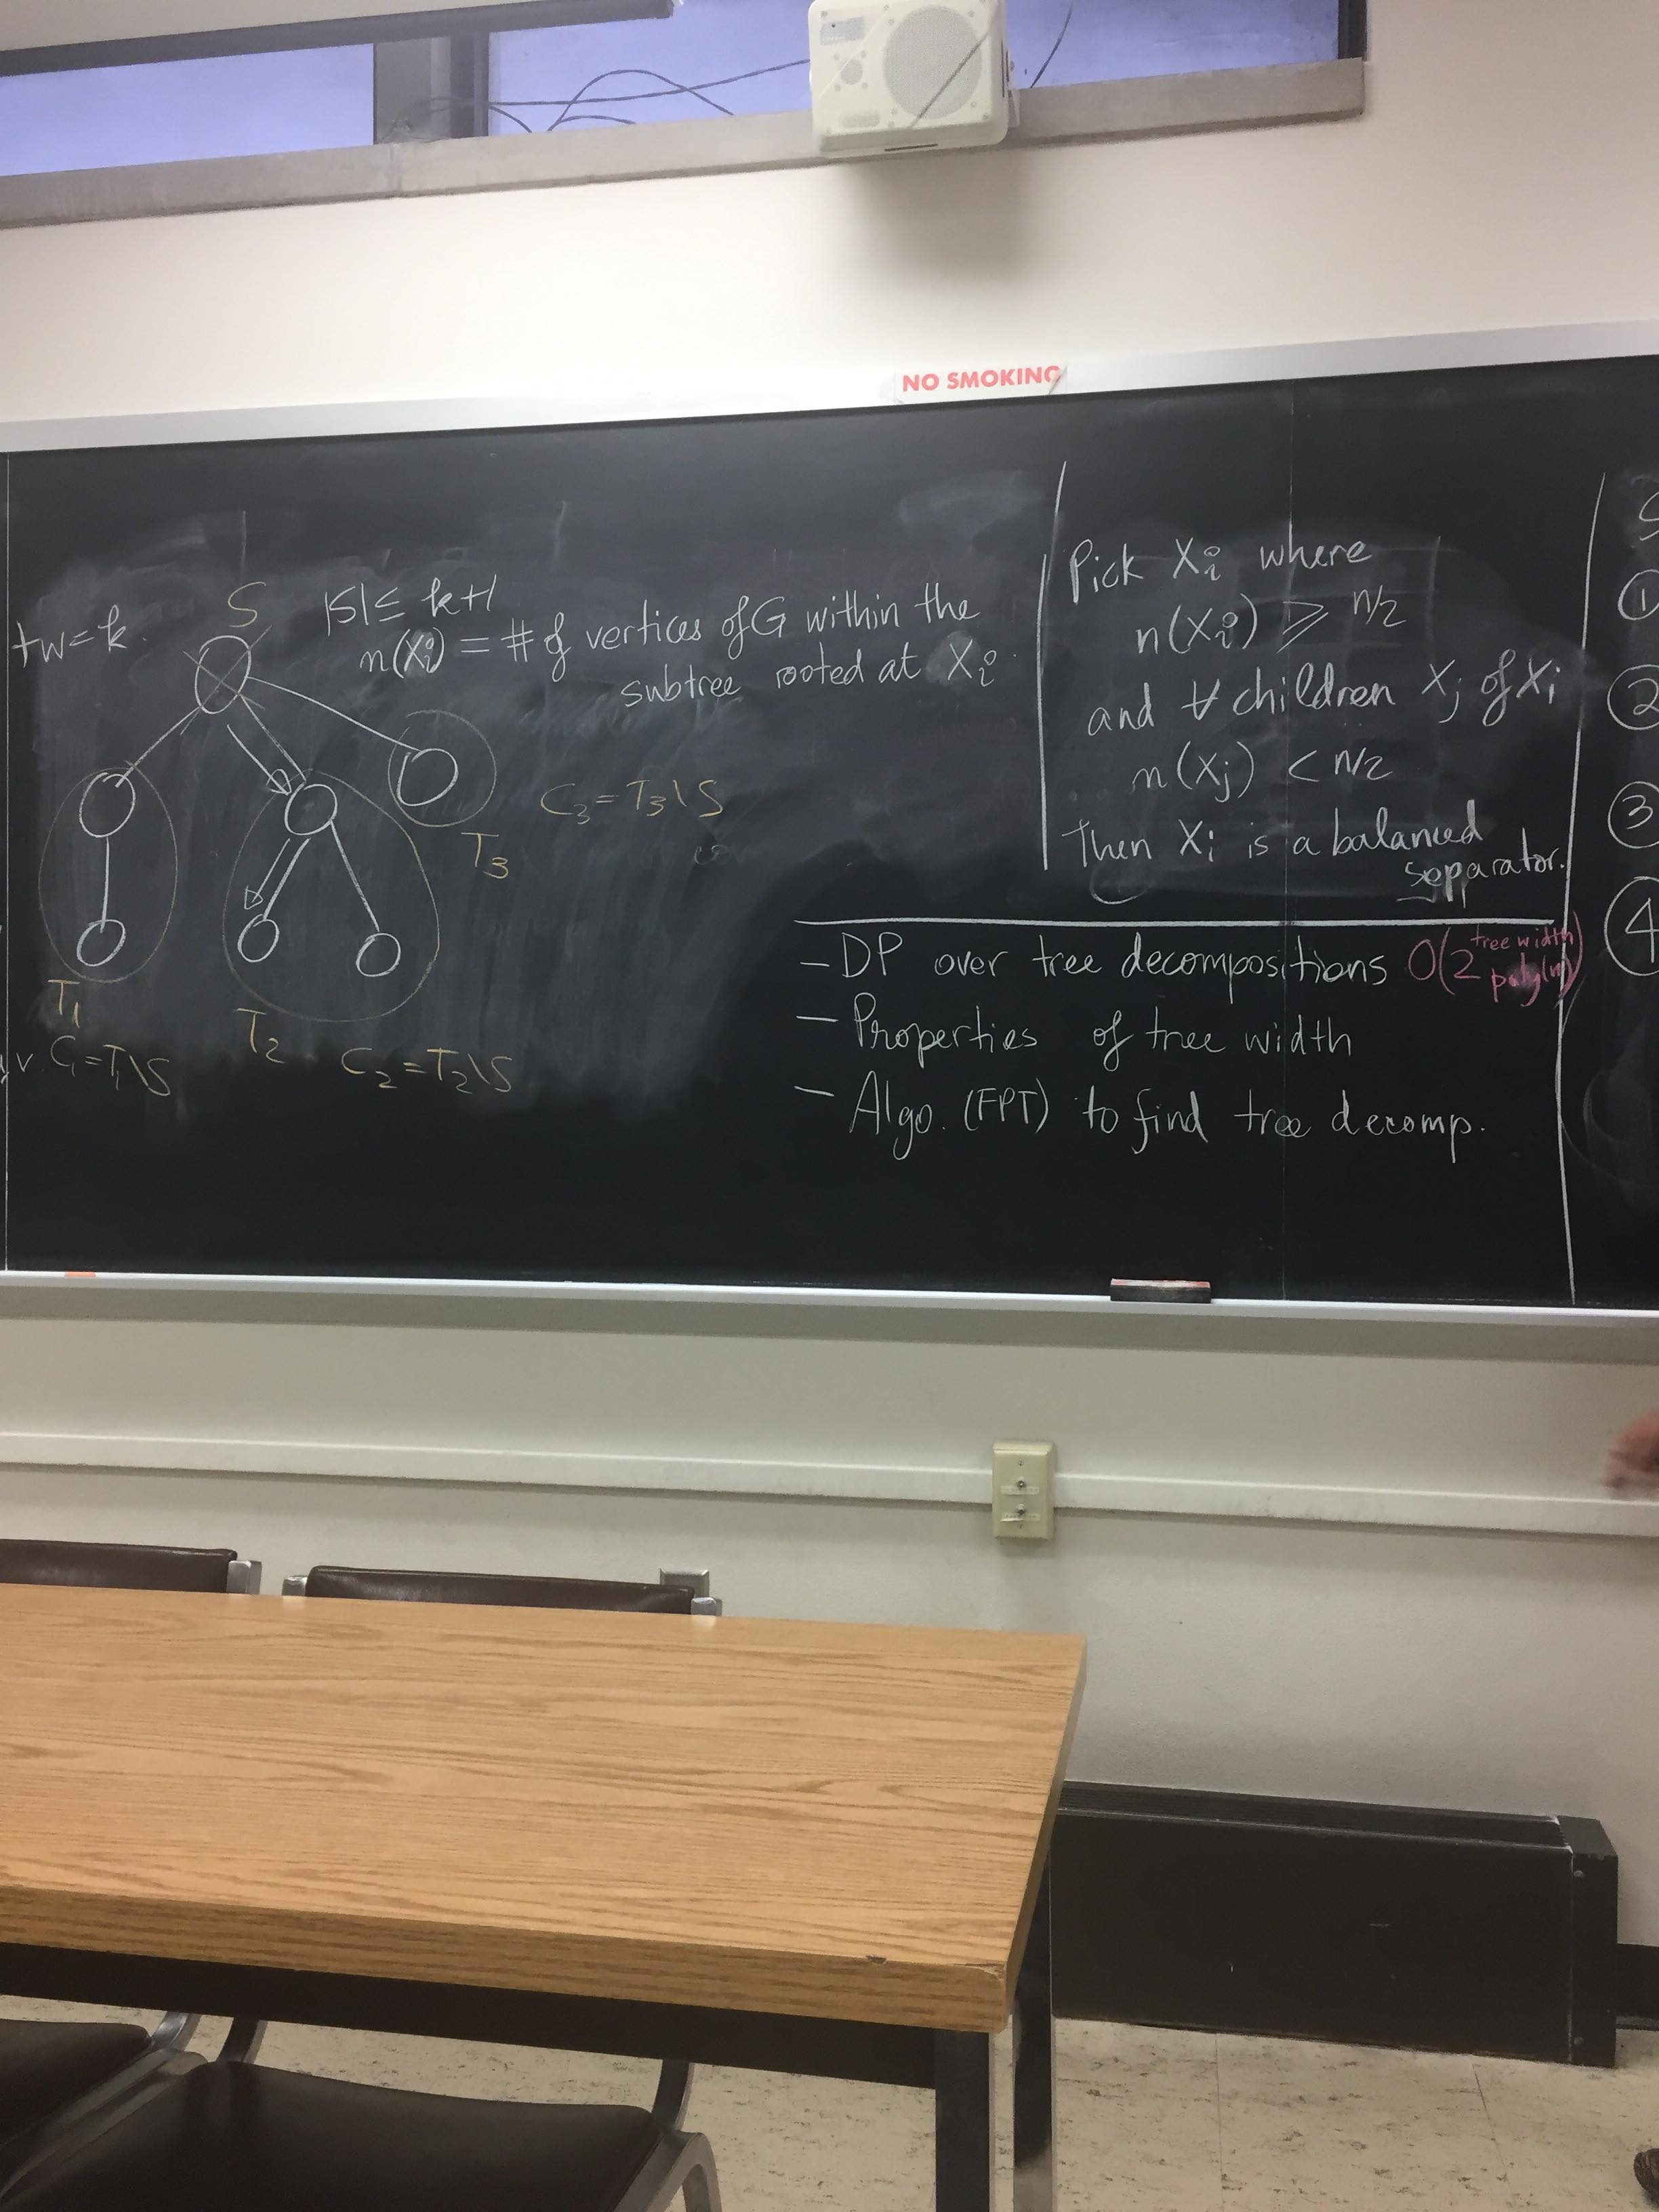 NO SMOKING
tw=k
S
|S| ≤ k+1
n(Xi) = # of vertices of G within the
subtree rooted at Xi
T3
C3=T3\S
T1
C1=T1\S
T2
C2=T2\S
Pick Xi where
n(Xi) ≥ n/2
and ∀ children Xj of Xi
n(Xj) < n/2
Then Xi is a balanced
separator.
– DP over tree decompositions O(2^tree width poly(n))
– Properties of tree width
– Algo. (FPT) to find tree decomp.
1
2
3
4